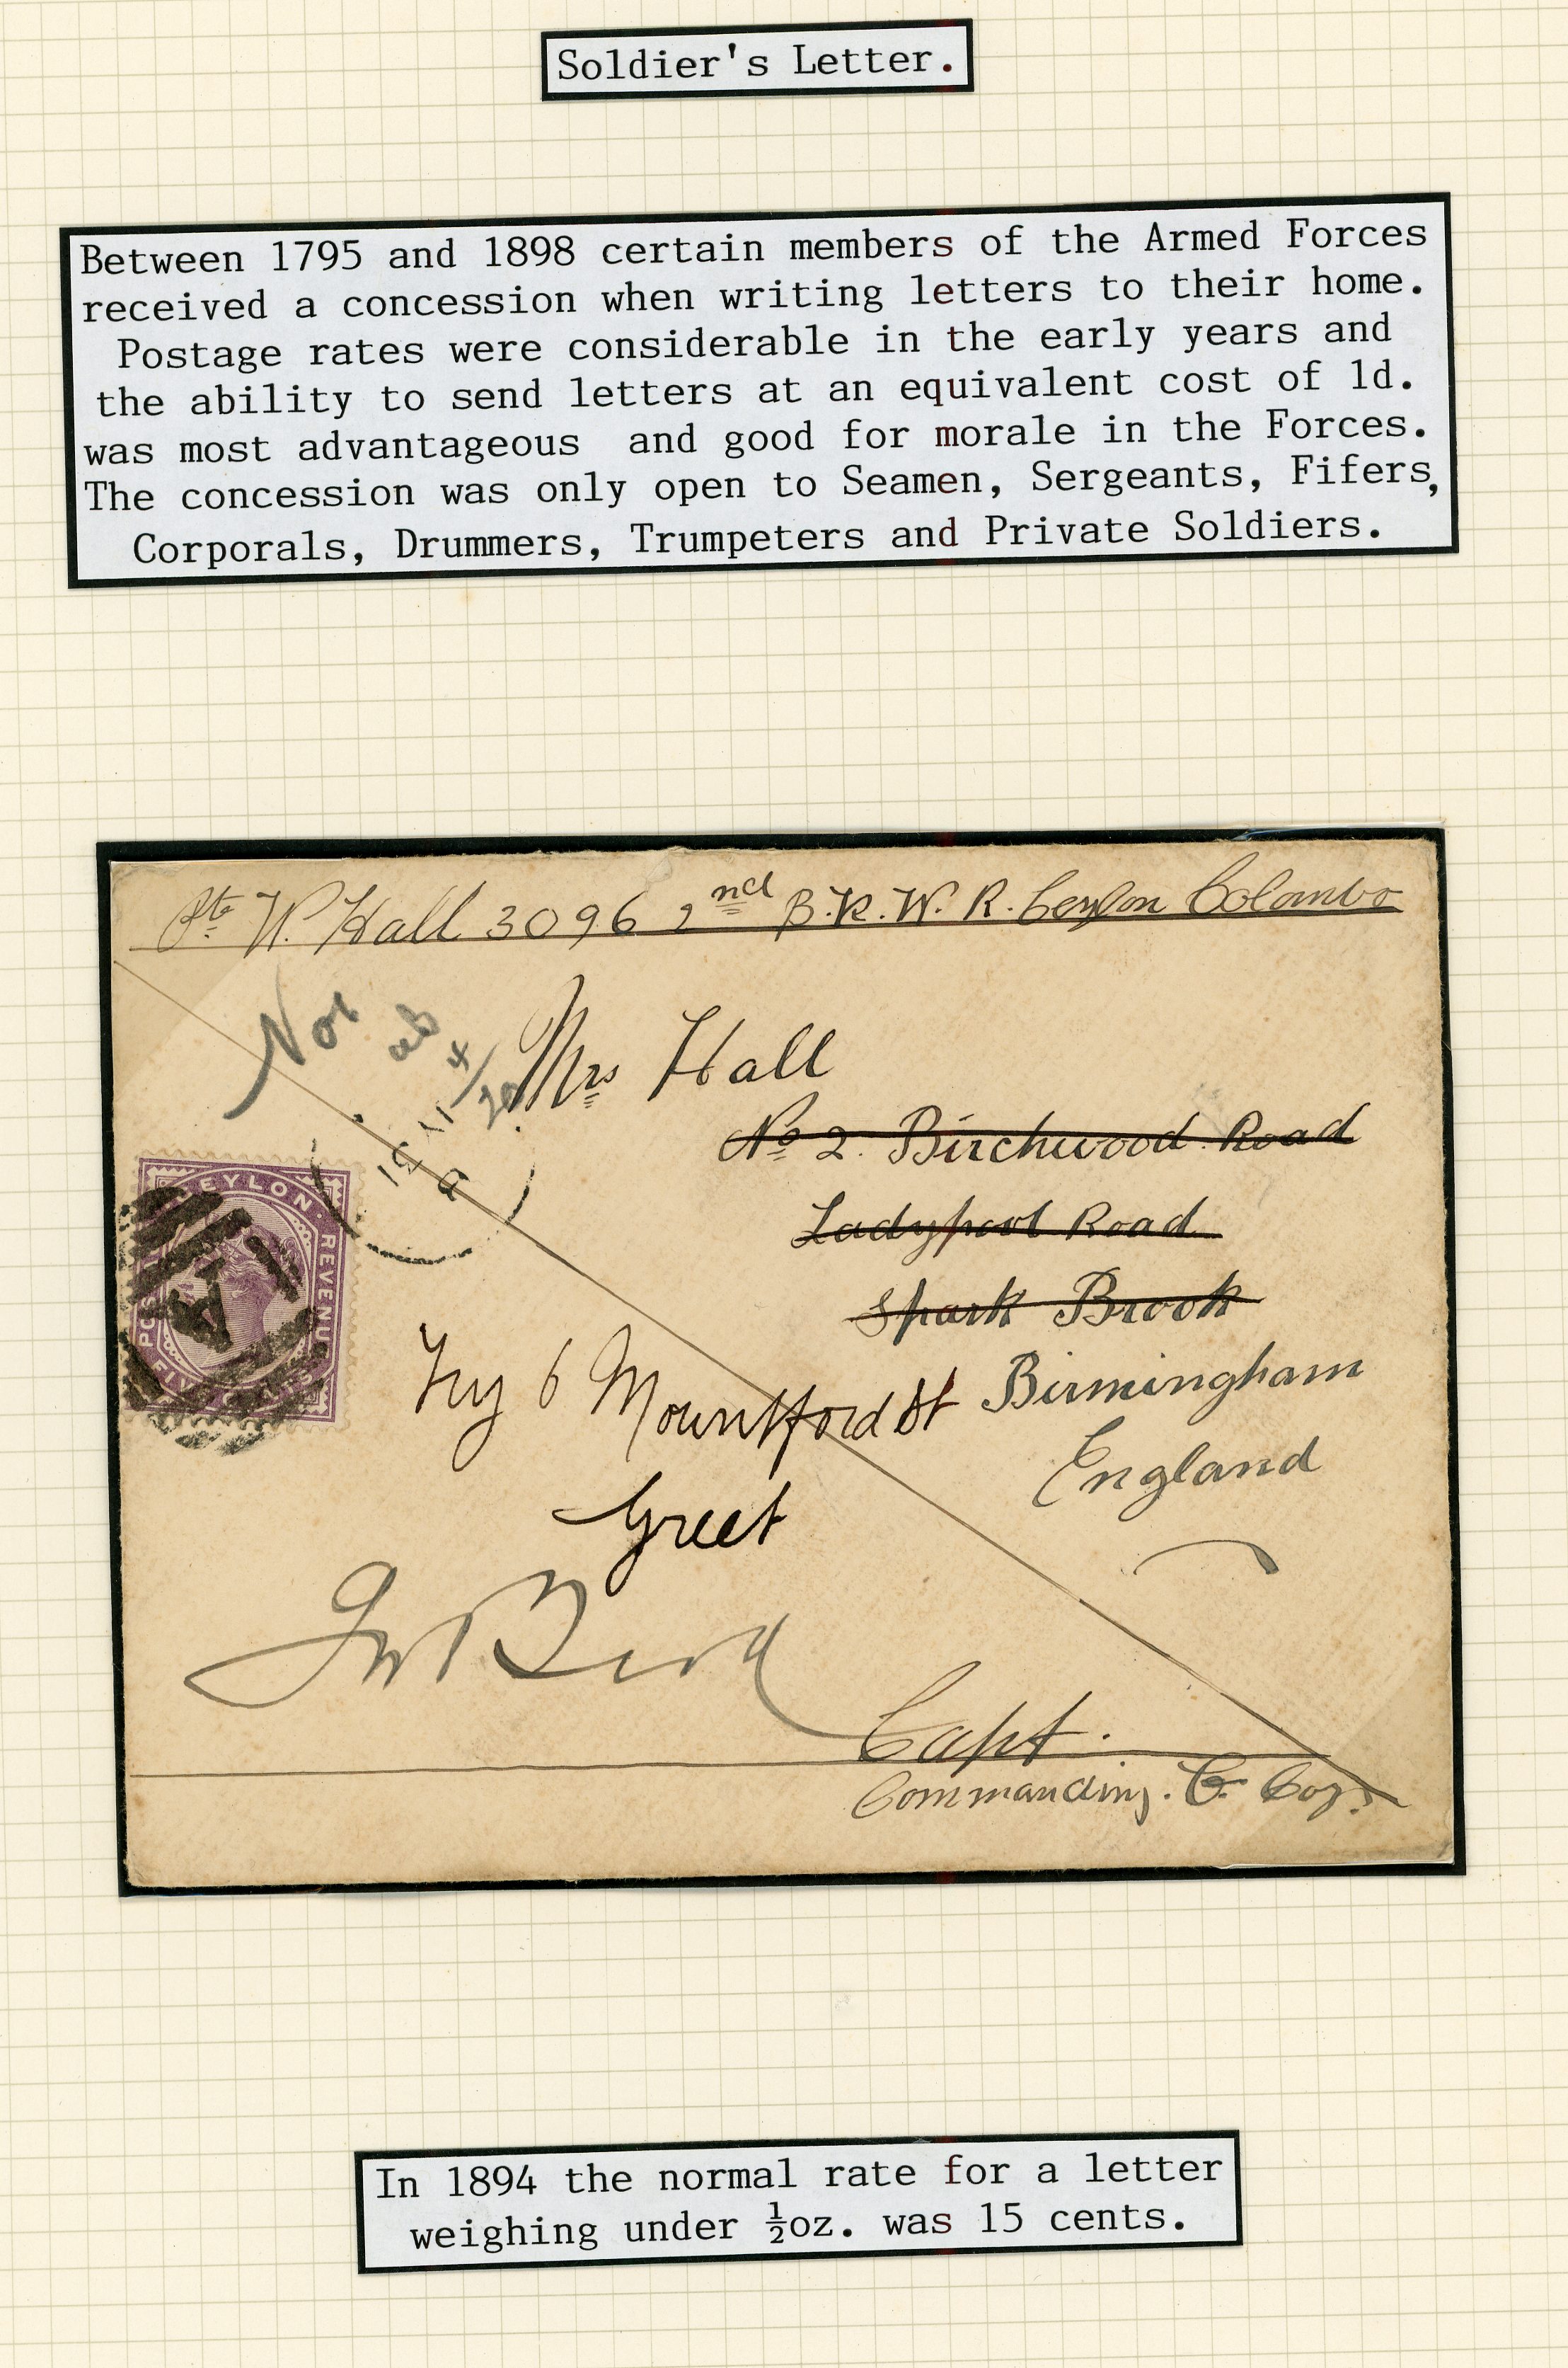 Soldier's Letter.
Between 1795 and 1898 certain members of the Armed Forces
received a concession when writing letters to their home.
Postage rates were considerable in the early years and
the ability to send letters at an equivalent cost of 1d.
was most advantageous and good for morale in the Forces.
The concession was only open to Seamen, Sergeants, Fifers,
Corporals, Drummers, Trumpeters and Private Soldiers.
Pte W. Hall 3096 2nd B.R.W.R. Ceylon Colombo
Not
Mrs Hall
No 2. Birchwood Road
Ladypool Road
Spark Brook
CEYLON.
REVENUE
Try 6 Mountford St
Birmingham
England
Greet
Capt.
Commanding. Coy.
In 1894 the normal rate for a letter
weighing under ½oz. was 15 cents.